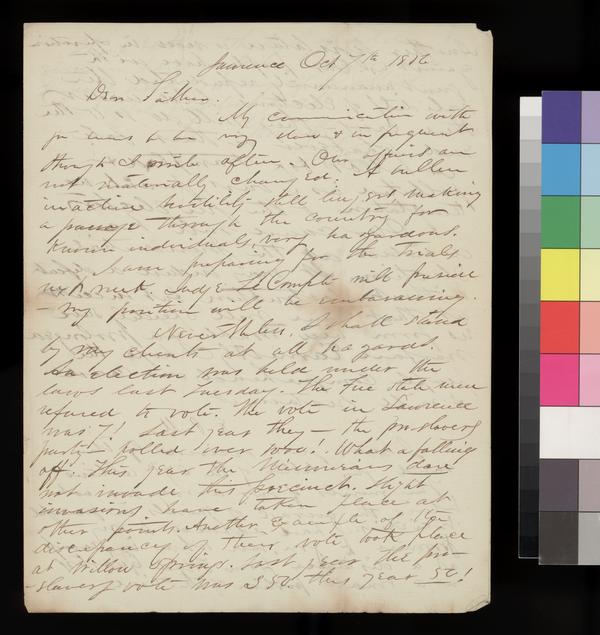 Lawrence Oct 7th 1856
Dear Father.
My communication with
you seems to be very slow & infrequent
though I write often. Our affairs are
not materially changed. A sullen
inactive hostility still lingers making
a passage through the country for
known individuals, very hazardous.
I am preparing for the Trials
next week Judge LeCompte will preside
— my position will be embarrassing.
Nevertheless, I shall stand
by my clients at all hazards.
An election was held under the
laws last Tuesday. The free state men
refused to vote. The vote in Lawrence
was 7! Last year they — the pro slavery
party — polled over 1000! What a falling
off. This year the Missourians dare
not invade this precinct. Slight
invasions have taken place at
other points. Another example of the
discrepancy of their vote took place
at Willow Springs. Last year the pro-
slavery vote was 350 this year 50!